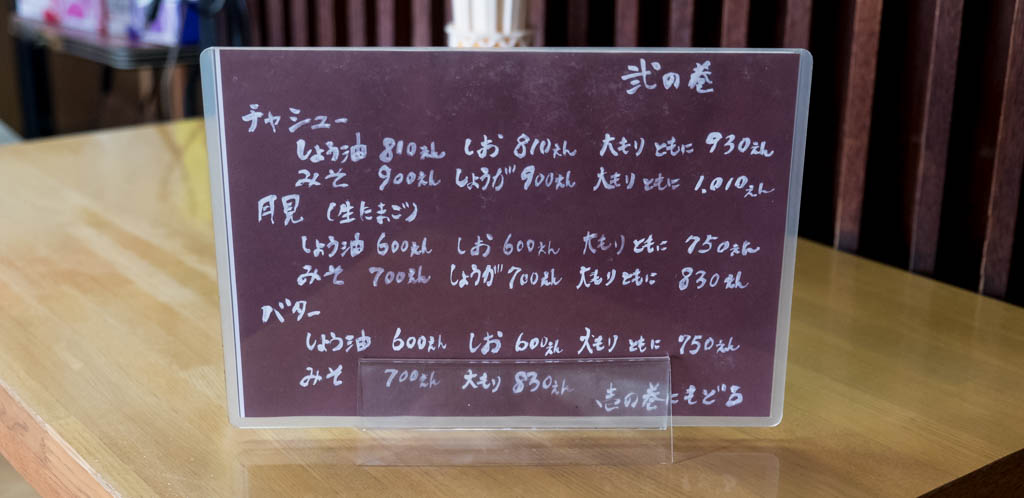 弐の巻
チャシュー
しょう油 810えん しお 810えん 大もり ともに 930えん
みそ 900えん しょうが 900えん 大もり ともに 1,010えん
月見 (生たまご)
しょう油 600えん しお 600えん 大もり ともに 750えん
みそ 700えん しょうが 700えん 大もり ともに 830えん
バター
しょう油 600えん しお 600えん 大もり ともに 750えん
みそ 700えん 大もり 830えん
壱の巻にもどる